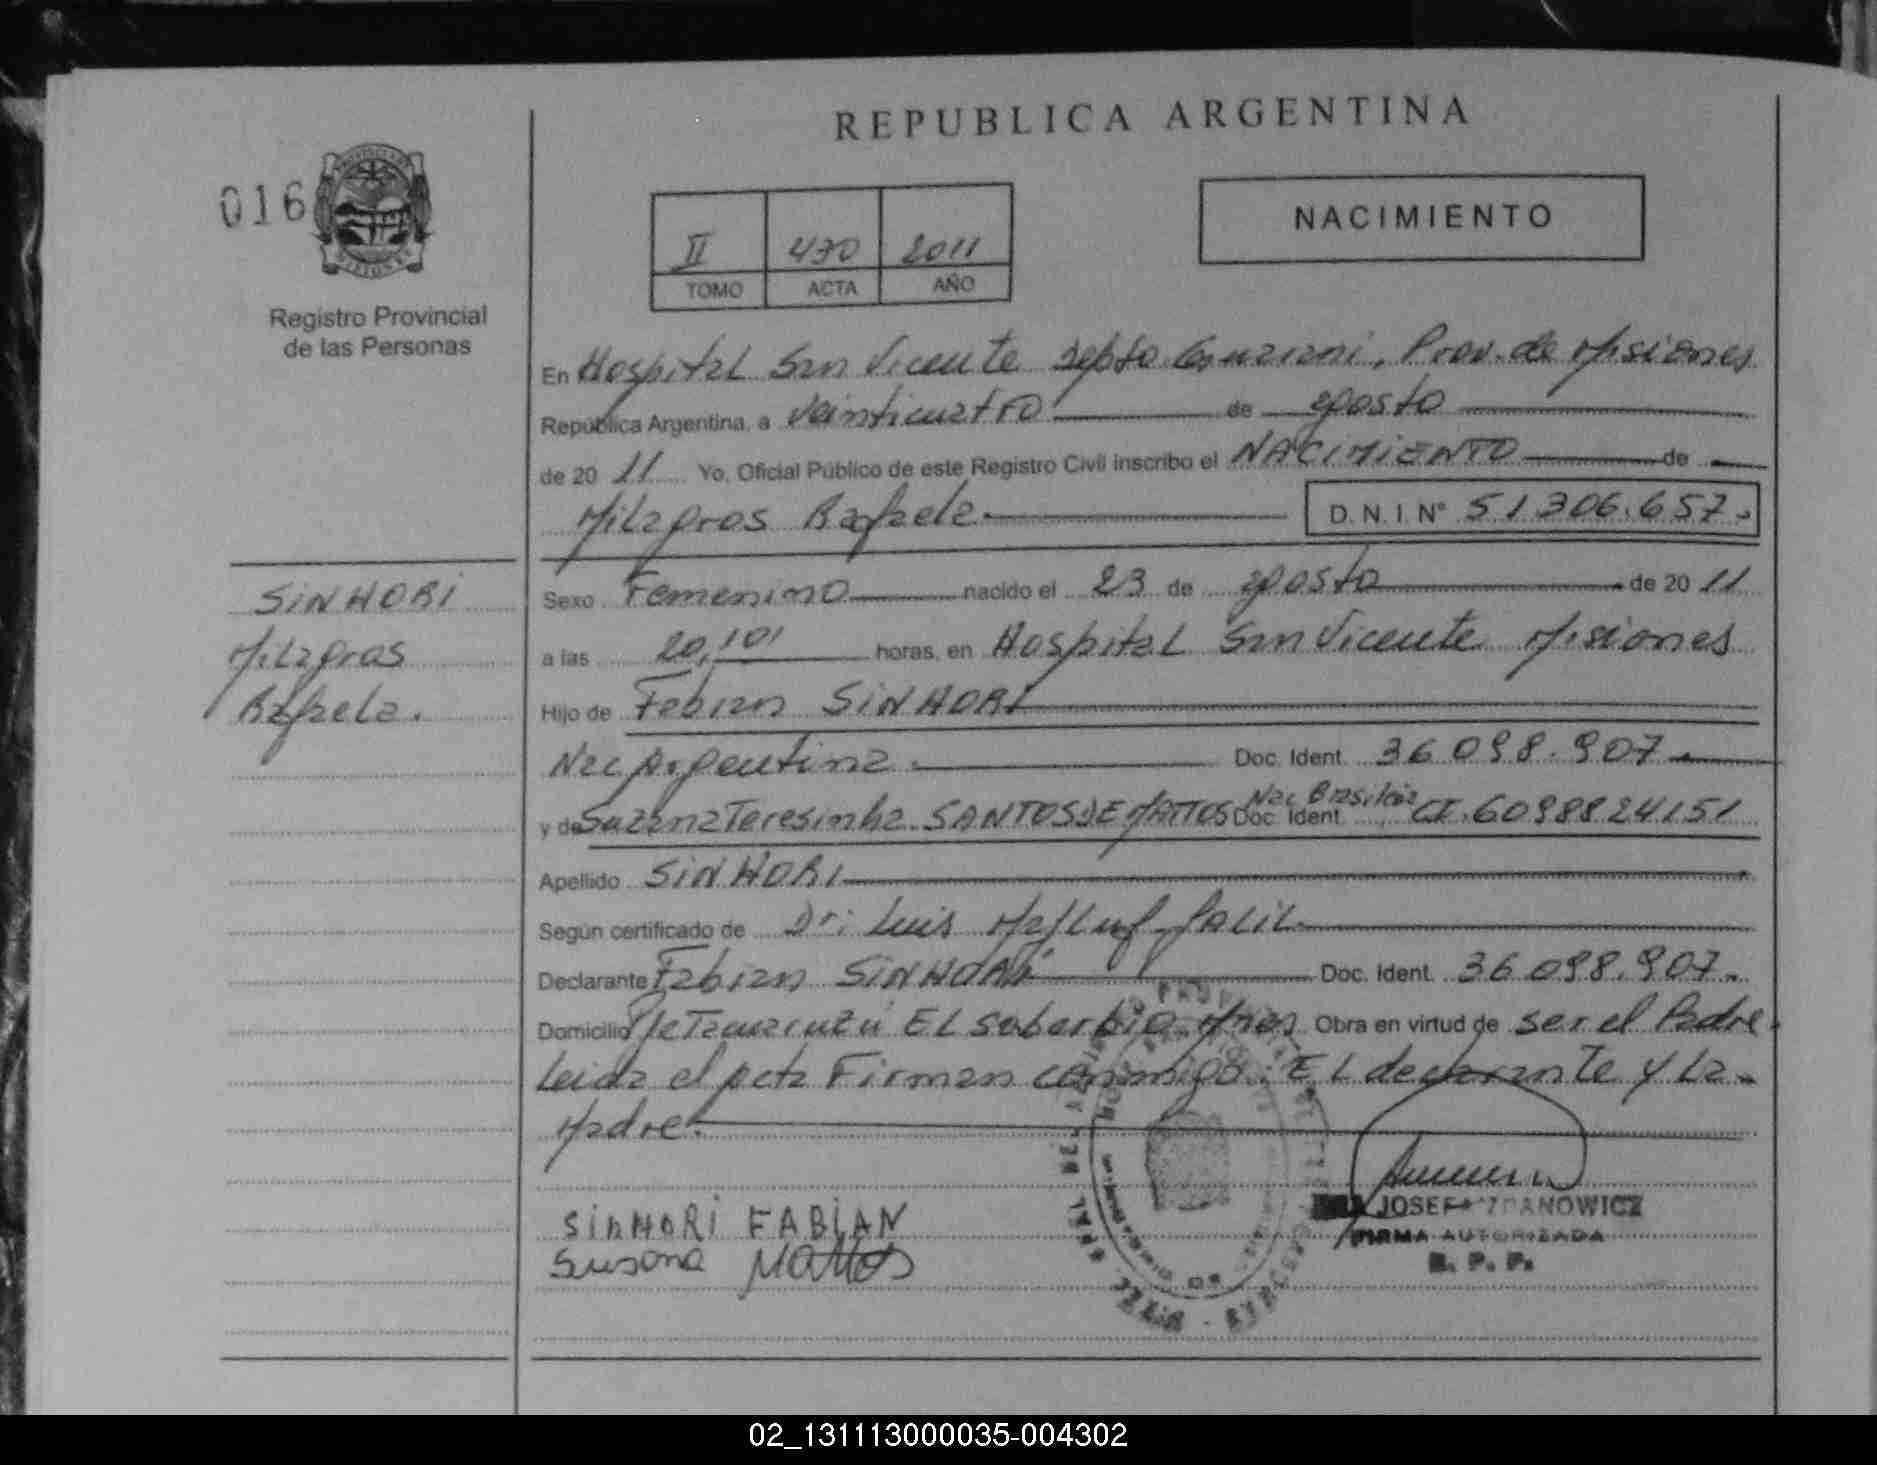 REPUBLICA ARGENTINA
016
Registro Provincial
de las Personas
II 470 2011
TOMO ACTA AÑO
NACIMIENTO
En Hospital San Vicente Depto Guarani, Prov. de Misiones
República Argentina, a veinticuatro de agosto
de 20 11 Yo, Oficial Público de este Registro Civil inscribo el NACIMIENTO de
Milagros Rafaela D.N.I. Nº 51.306.657.
SINHORI
Milagros
Rafaela.
Sexo Femenino nacido el 23 de agosto de 20 11
a las 20,10' horas, en Hospital San Vicente Misiones
Hijo de Fabian SINHORI
Nac Argentina. Doc. Ident. 36.098.907.
Nac Brasileña
y de Teresinha SANTOS DE MATTOS Doc. Ident. CI.6098824151
Apellido SINHORI
Según certificado de Dr: Luis
Declarante Fabian SINHORI Doc. Ident. 36.098.907.
Domicilio El Soberbio Mnes Obra en virtud de ser el Padre.
Leida el acta Firman conmigo: El declarante y La
Madre.
SINHORI FABIAN
Susana Mattos
JOSEFA ZDANOWICZ
FIRMA AUTORIZADA
R. P. P.
02_131113000035-004302